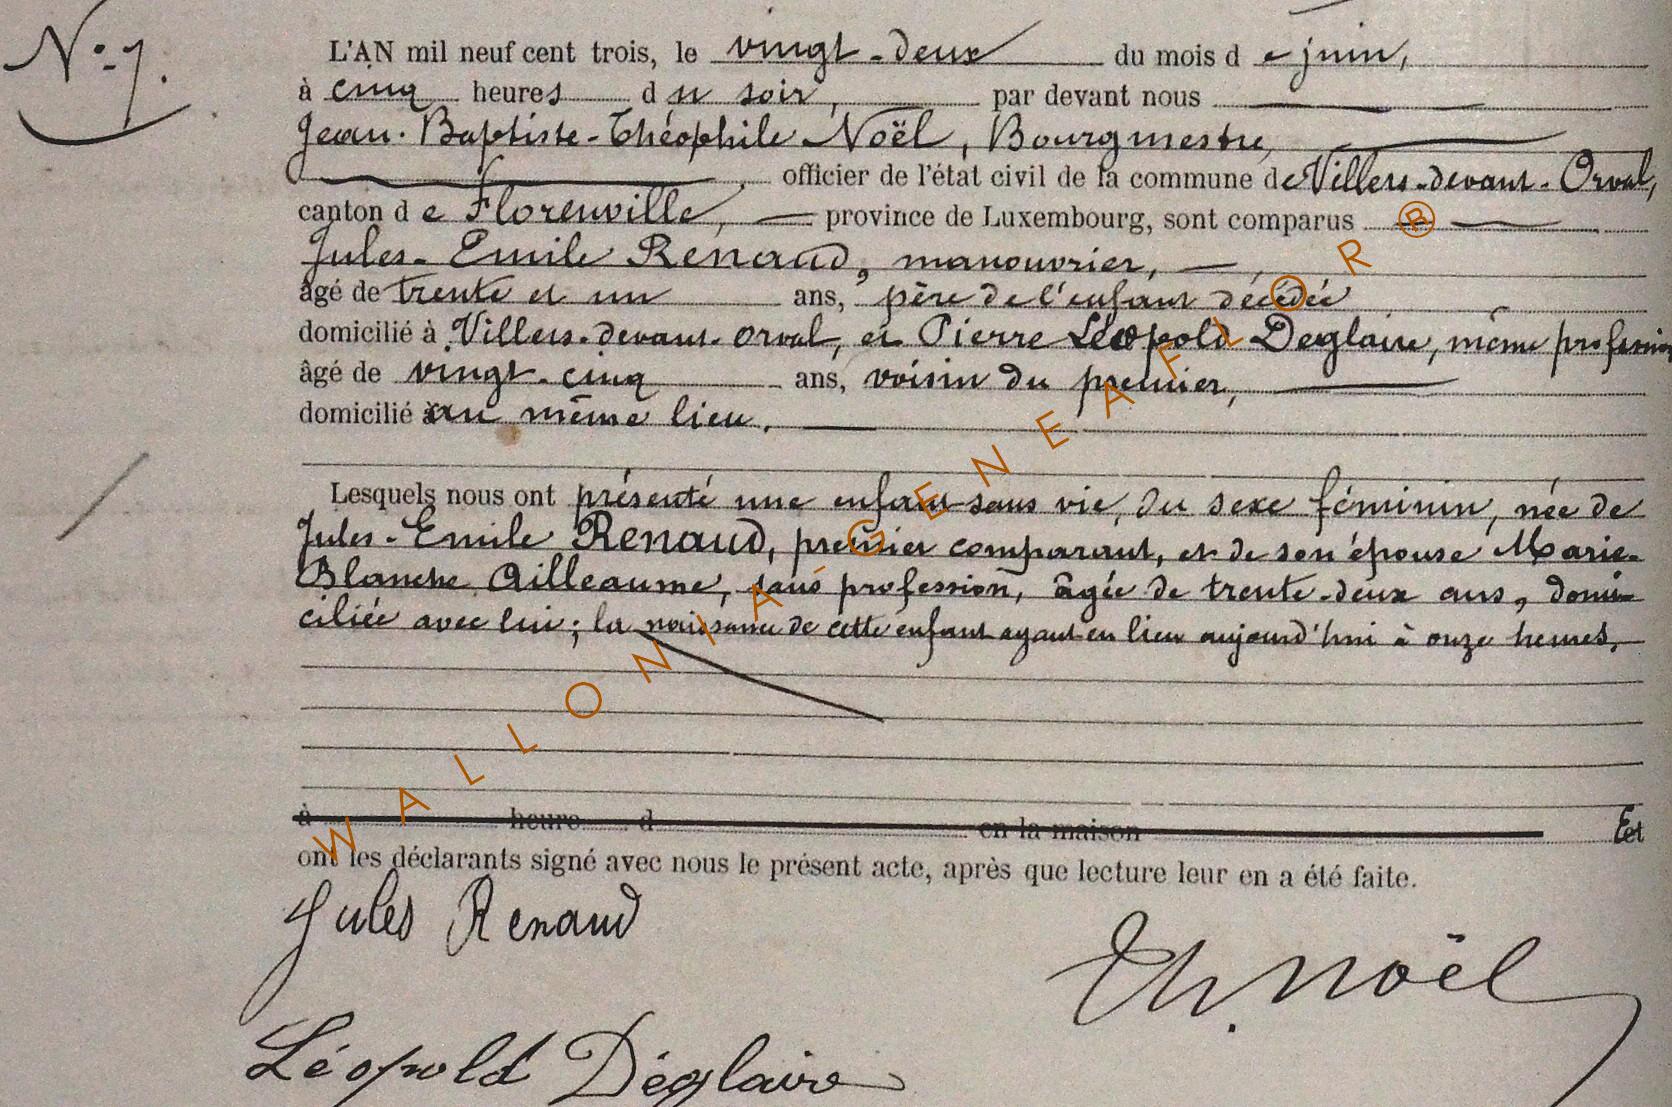 N° 7.
L'AN mil neuf cent trois, le vingt-deux du mois d e juin,
à cinq heures d u soir, par devant nous
Jean-Baptiste-Théophile Noël, Bourgmestre,
officier de l'état civil de la commune de Villers-devant-Orval,
canton d e Florenville, province de Luxembourg, sont comparus
Jules-Emile Renaud, manouvrier,
âgé de trente et un ans, père de l'enfant décédée
domicilié à Villers-devant-Orval, et Pierre Léopold Deglaire, même profession
âgé de vingt-cinq ans, voisin du premier,
domicilié au même lieu.
Lesquels nous ont présenté une enfant sans vie, du sexe féminin, née de
Jules-Emile Renaud, premier comparant, et de son épouse Marie-
Blanche Ailleaume, sans profession, âgée de trente-deux ans, domi-
ciliée avec lui; la naissance de cette enfant ayant eu lieu aujourd'hui à onze heures,
à heure d en la maison Et
ont les déclarants signé avec nous le présent acte, après que lecture leur en a été faite.
Jules Renaud
Th. Noël
Léopold Déglaire
WALLONIA GENEAFLOR®